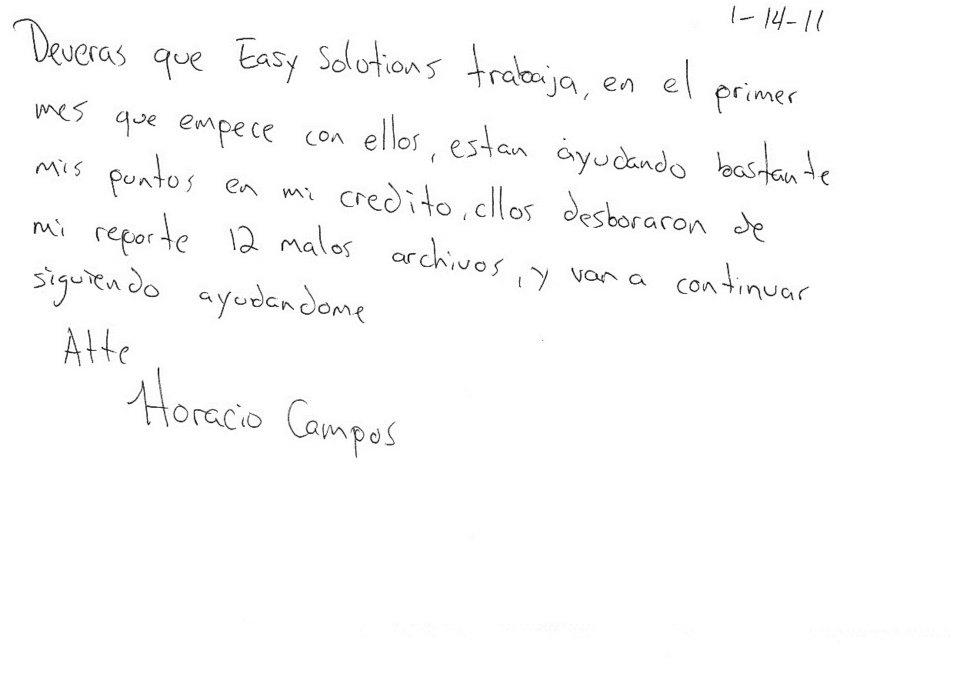 1-14-11
Deveras que Easy Solutions trabaja, en el primer
mes que empece con ellos, estan ayudando bastante
mis puntos en mi credito, ellos desboraron de
mi reporte 12 malos archivos, y van a continuar
siguiendo ayudandome
Atte
Horacio Campos